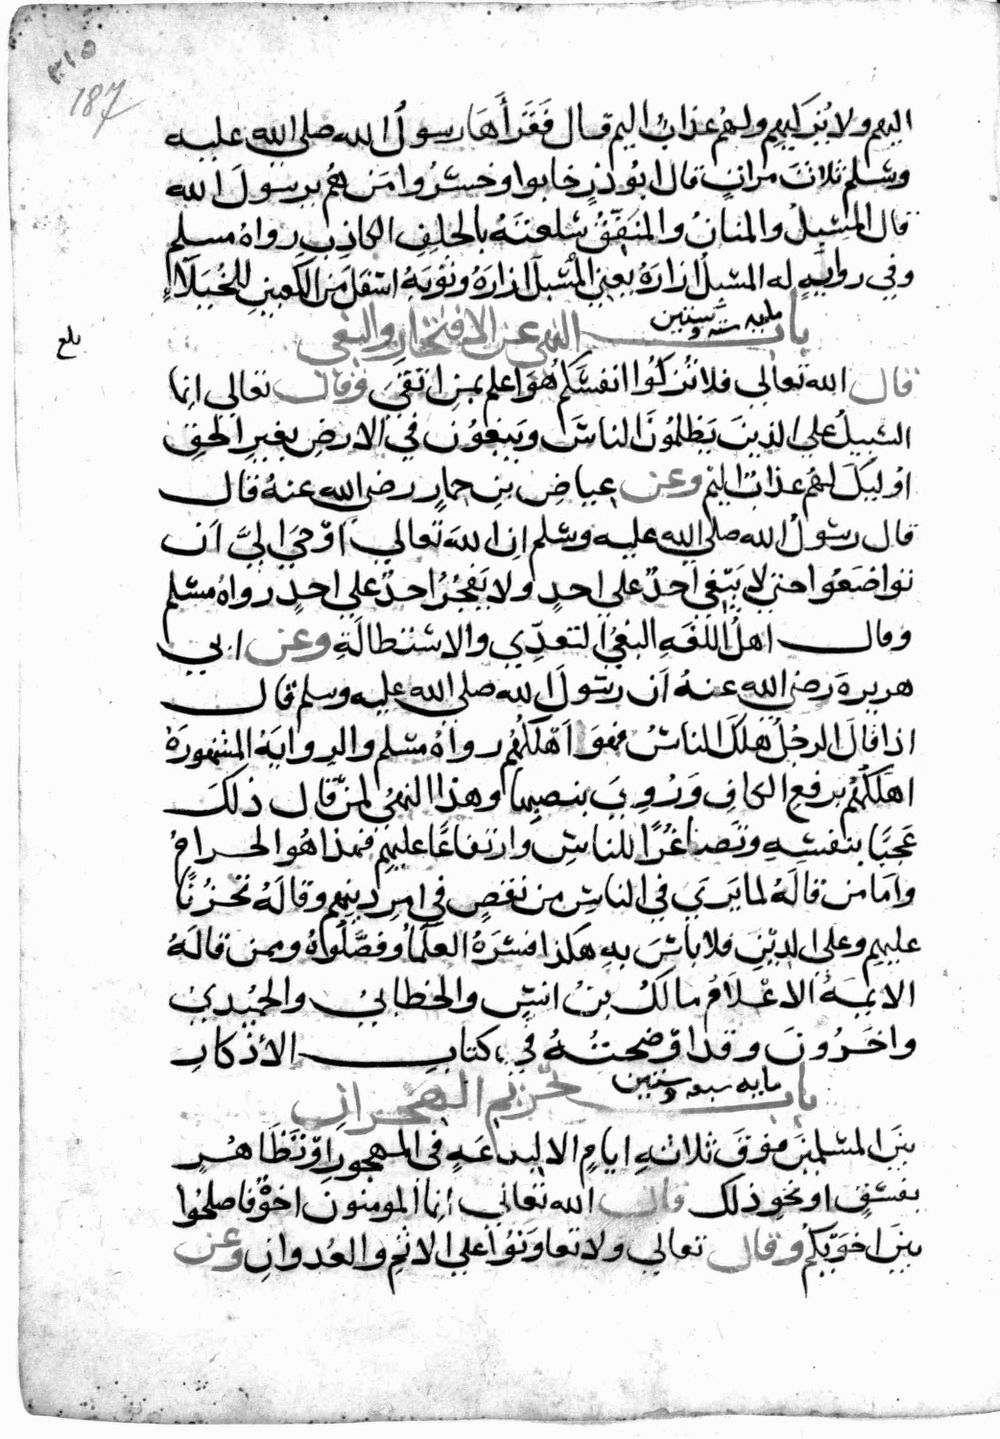 ٣١٥
187
اليهم ولا يزكيهم ولهم عذاب اليم قال فقرأها رسول الله صلى الله عليه
وسلم ثلاث مرات قال ابوذر خابوا وخسروا من هم يرسول الله
قال المسبل والمنان والمنفق سلعته بالحلف الكاذب رواه مسلم
وفي رواية له المسبل ازاره يعني المسبل ازاره وثوبه اسفل من الكعبين للخيلاء
باب مايه سته وستين النهي عن الافتخار والبغي
بلغ
قال الله تعالى فلا تزكوا انفسكم هو اعلم بمن اتقى وقال تعالى انما
السبيل على الذين يظلمون الناس ويبغون في الارض بغير الحق
اوليك لهم عذاب اليم وعن عياض بن حمار رضى الله عنه قال
قال رسول الله صلى الله عليه وسلم ان الله تعالى اوحى الي ان
تواضعوا حتى لا يبغي احد على احد ولا يفجر احد على احد رواه مسلم
وقال اهل اللغه البغي التعدي والاستطالة وعن ابي
هريرة رضى الله عنه ان رسول الله صلى الله عليه وسلم قال
اذا قال الرجل هلك الناس فهو اهلكهم رواه مسلم والرواية المشهورة
اهلكهم برفع الكاف وروي بنصبها وهذا النهي لمن قال ذلك
عجبا بنفسه وتصاغرا للناس وارتفاعا عليهم فهذا هو الحرام
واما من قاله لما يرى في الناس من نقص في امر دينهم وقاله تحزنا
عليهم وعلى الدين فلا باس به هكذا فسره العلما وفصلوه وممن قاله
الايمة الاعلام مالك بن انس والخطابي والحميدي
واخرون وقد اوضحته في كتاب الأذكار
باب مايه سبعه وستين تحريم الهجران
بين المسلمين فوق ثلاثة ايام الا لبدعة في المهجور او تظاهر
بفسق او نحو ذلك قال الله تعالى انما المومنون اخوة فاصلحوا
بين اخويكم وقال تعالى ولا تعاونوا على الاثم والعدوان وعن